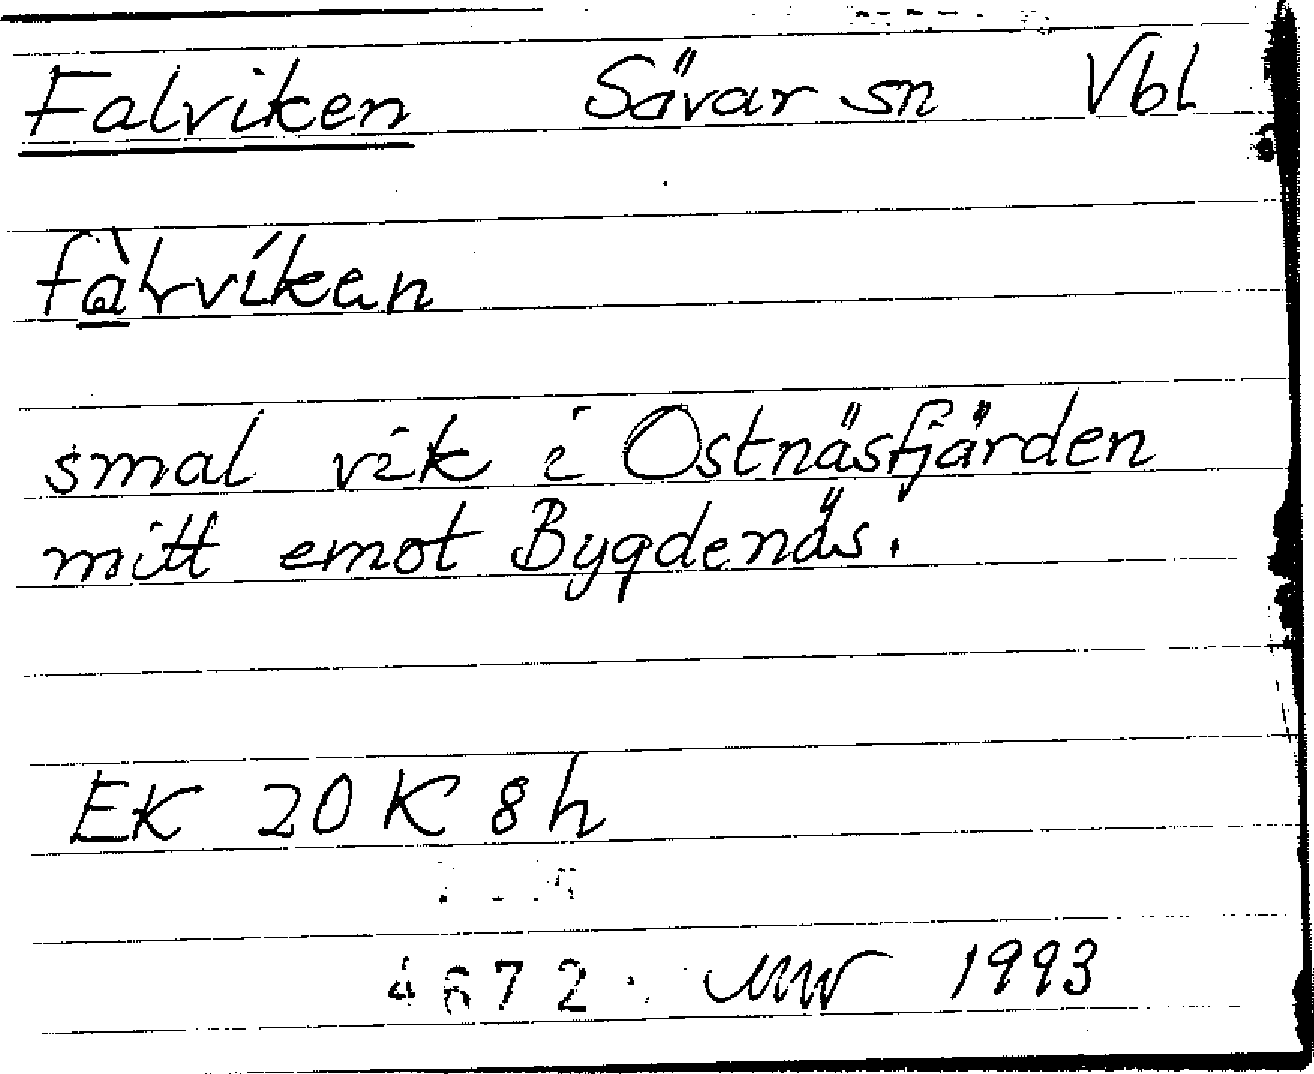 Falviken Sävar sn Vbl
fàlvíken
smal vik i Ostnäsfjärden
mitt emot Bygdenäs.
EK 20 K 8 h
4672 MW 1993